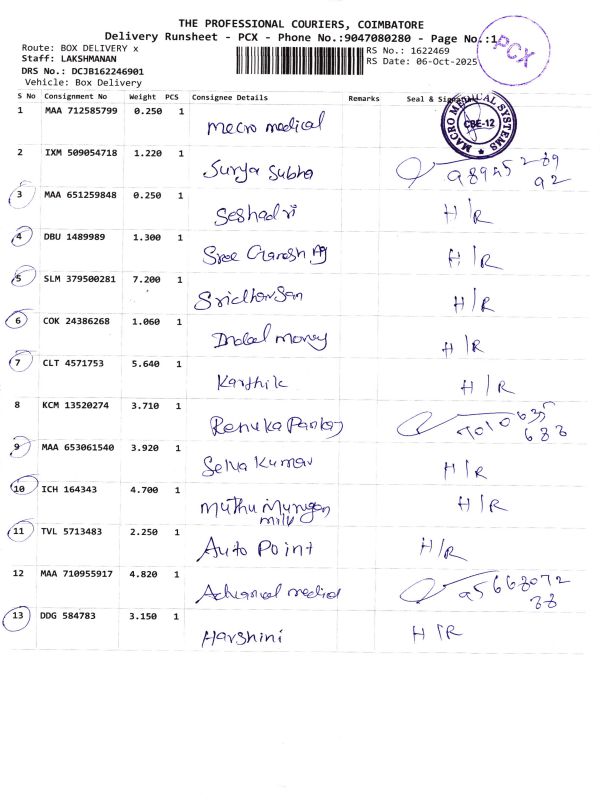 THE PROFESSIONAL COURIERS, COIMBATORE
Delivery Runsheet - PCX - Phone No.:9047080280 - Page No.:1
PCX
Route: BOX DELIVERY x
RS No.: 1622469
Staff: LAKSHMANAN
RS Date: 06-Oct-2025
DRS No.: DCJB162246901
Vehicle: Box Delivery
S No Consignment No Weight PCS Consignee Details Remarks Seal & Signature
1 MAA 712585799 0.250 1 mecro medical MACRO MEDICAL SYSTEMS CBE-12
2 IXM 509054718 1.220 1 Surya Subha
3 MAA 651259848 0.250 1 Seshadri H/R
4 DBU 1489989 1.300 1 Sree Ganesh Ag H/R
5 SLM 379500281 7.200 1 Sridharsan H/R
6 COK 24386268 1.060 1 money H/R
7 CLT 4571753 5.640 1 Karthik H/R
8 KCM 13520274 3.710 1 Renuka Pankaj
9 MAA 653061540 3.920 1 Selva Kumar H/R
10 ICH 164343 4.700 1 Muthu Murugan H/R
milk
11 TVL 5713483 2.250 1 Auto Point H/R
12 MAA 710955917 4.820 1
13 DDG 584783 3.150 1 Harshini H/R